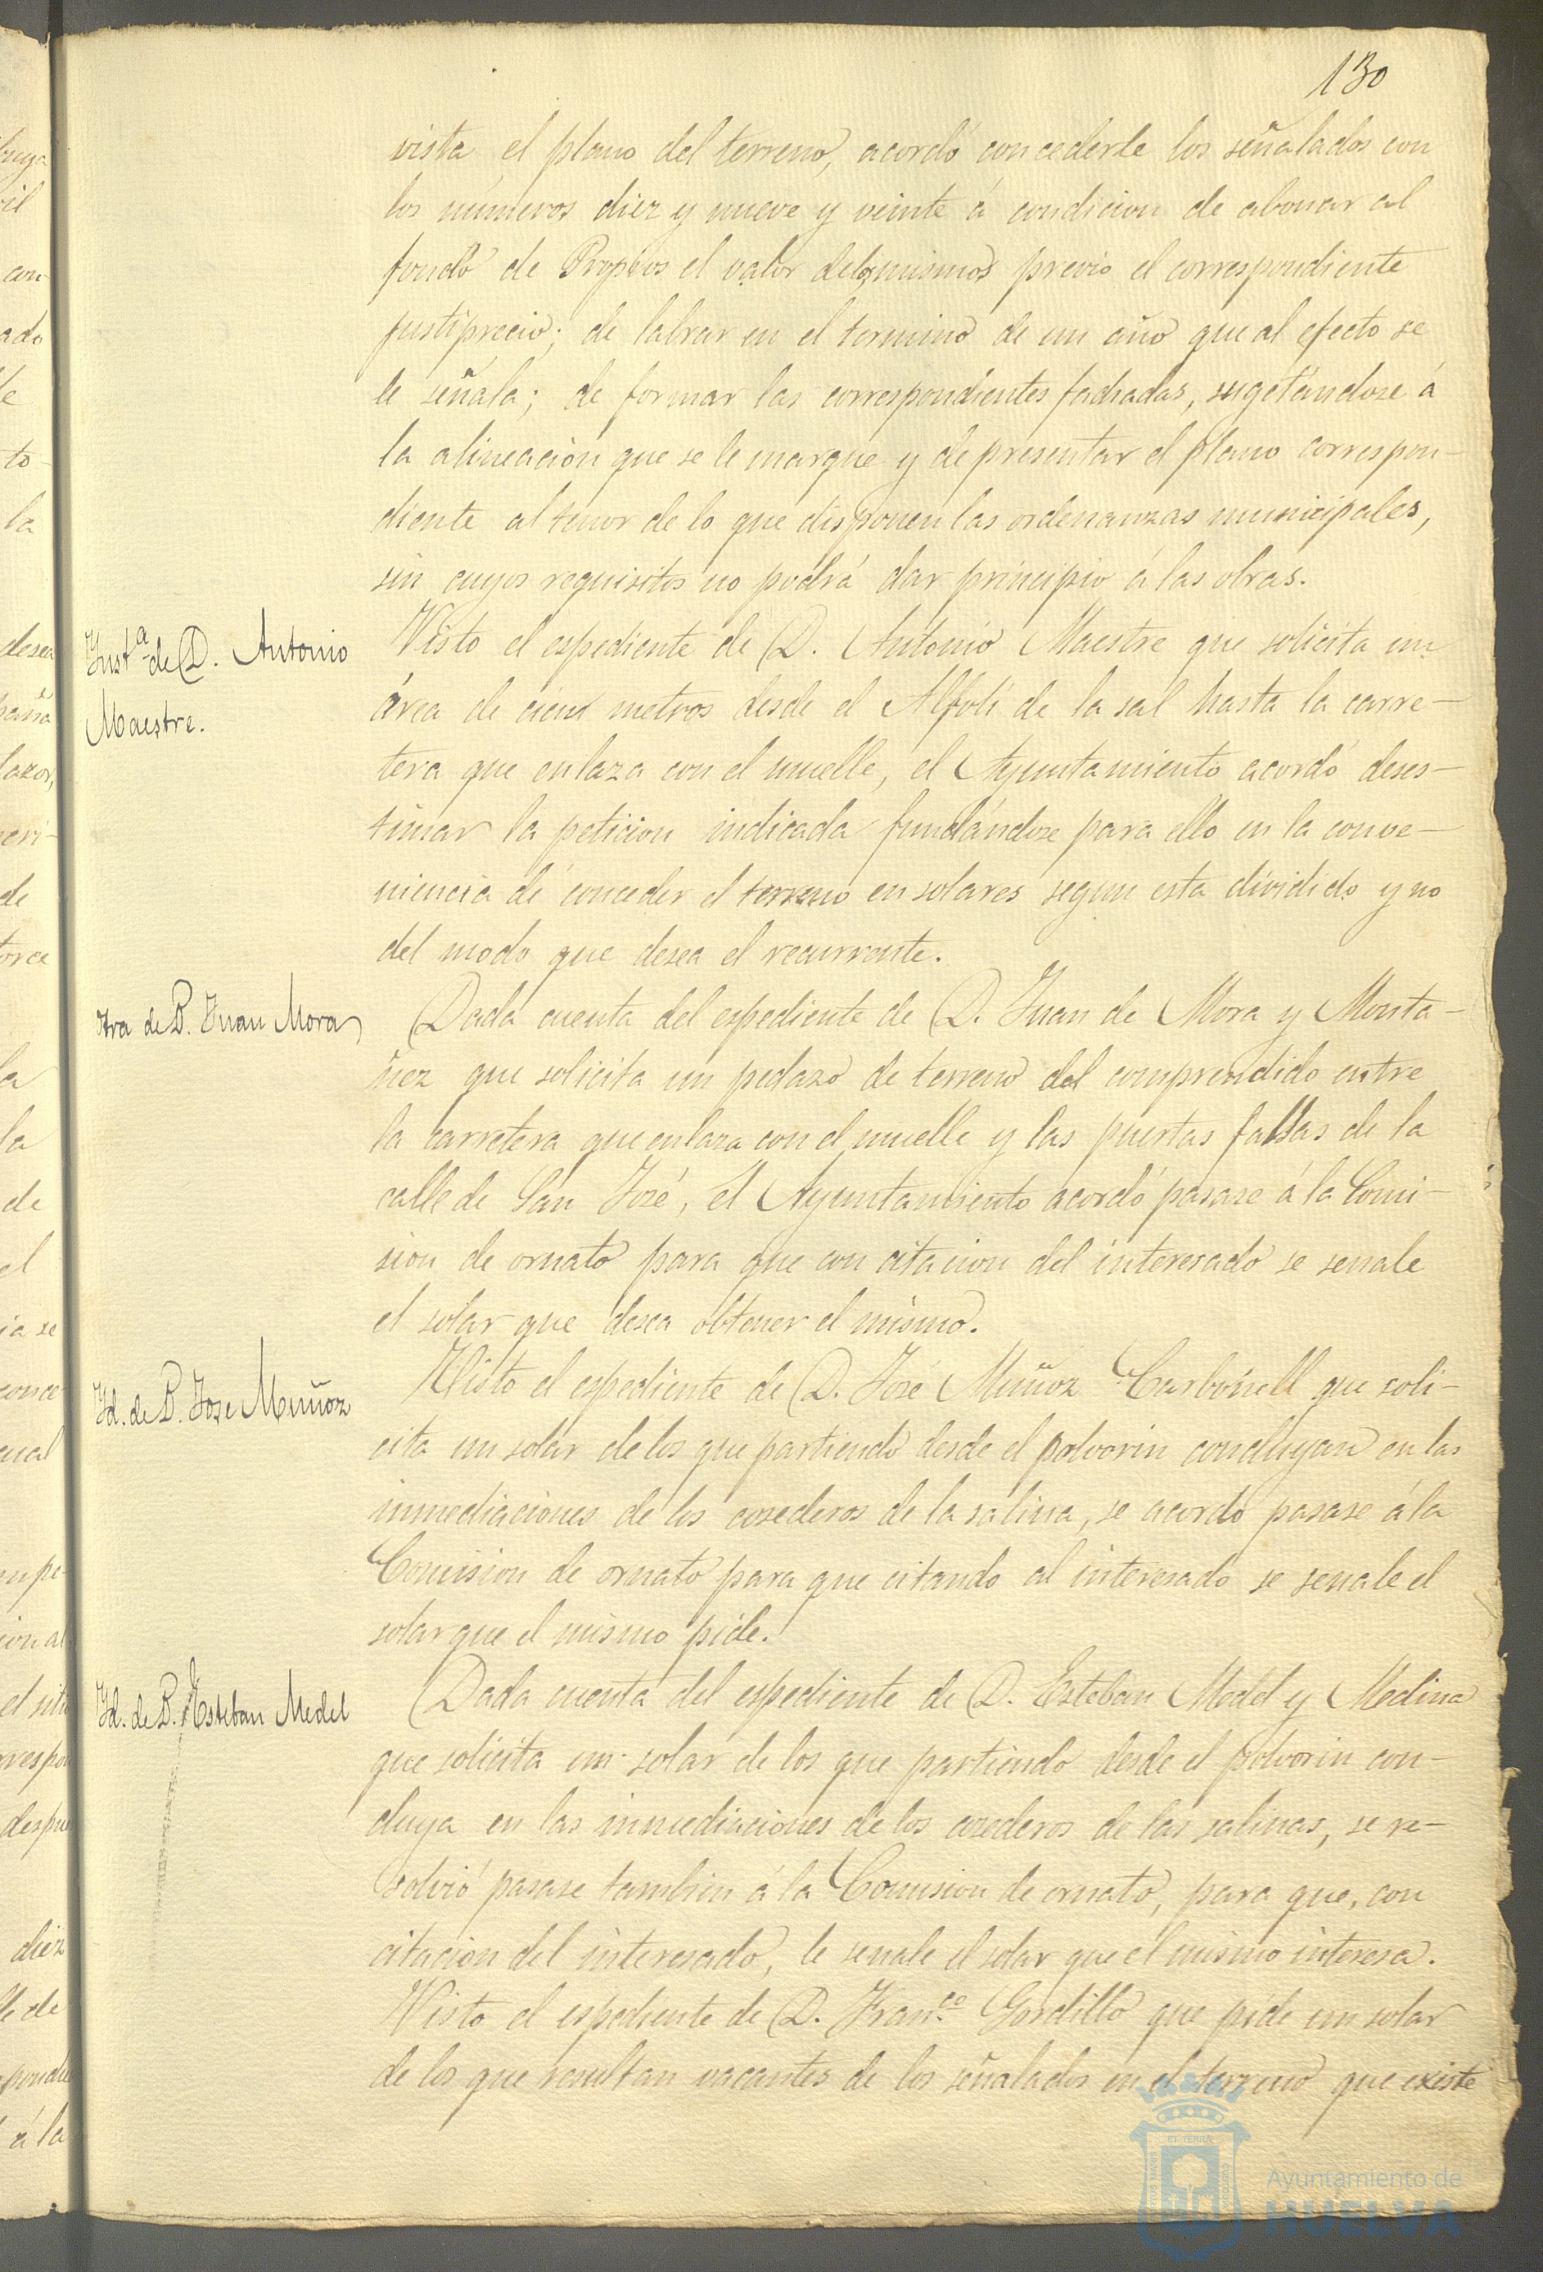 130
vista el plano del terreno, acordó concederle los señalados con
los números diez y nueve y veinte á condicion de abonar al
fondo de Propios el valor de los mismos previo el correspondiente
justiprecio; de labrar en el termino de un año que al efecto se
le señala; de formar las correspondientes fachadas, sugetándose á
la alineacion que se le marque y de presentar el plano correspon-
diente al tenor de lo que disponen las ordenanzas municipales,
sin cuyos requisitos no podrá dar principio á las obras.
Inst.ª de D. Antonio
Maestre.
Visto el espediente de D. Antonio Maestre que solicita un
área de cien metros desde el Alfolí de la sal hasta la carre-
tera que enlaza con el muelle, el Ayuntamiento acordó deses-
timar la peticion indicada fundándose para ello en la conve-
niencia de conceder el terreno en solares segun esta dividido y no
del modo que desea el recurrente.
otra de D. Juan Mora
Dada cuenta del espediente de D. Juan de Mora y Monta-
ñez que solicita un pedazo de terreno del comprendido entre
la carretera que enlaza con el muelle y las puertas falsas de la
calle de San José, el Ayuntamiento acordó pasase á la Comi-
sion de ornato para que con citacion del interesado se senale
el solar que desea obtener el mismo.
Id. de D. Jose Muñoz
Visto el espediente de D. José Muñoz Carbonell que soli-
cita un solar de los que partiendo desde el polvorin concluyan en las
inmediaciones de los cosederos de la salina, se acordó pasase á la
Comision de ornato para que citando al interesado se senale el
solar que el mismo pide.
Id. de D. Esteban Medel
Dada cuenta del espediente de D. Esteban Medel y Medina
que solicita un solar de los que partiendo desde el polvorin con-
cluya en las inmediaciones de los cosederos de las salinas, se re-
solvió pasase tambien á la Comision de ornato, para que, con
citacion del interesado, le senale el solar que el mismo interesa.
Visto el espediente de D. Fran.co Gordillo que pide un solar
de los que resultan vacantes de los señalados en el terreno que existe
Ayuntamiento de
HUELVA